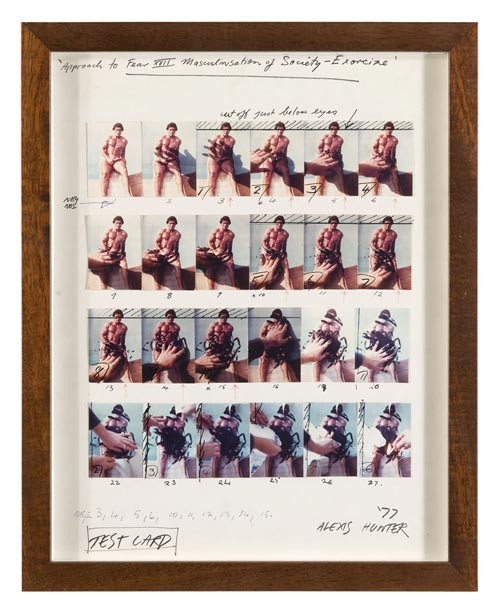 'Approach to Fear XVII Masculinisation of Society - Exorcise'
cut off just below eyes
1 2 3 4
2 3 4 5 6
5 6 7
7 8 9 10 11 12
13 4 15 16 19 20
3
22 23 24 25 26 27.
3, 4, 5, 6, 10, 11, 12, 13, 14, 15.
'77
TEST CARD
ALEXIS HUNTER